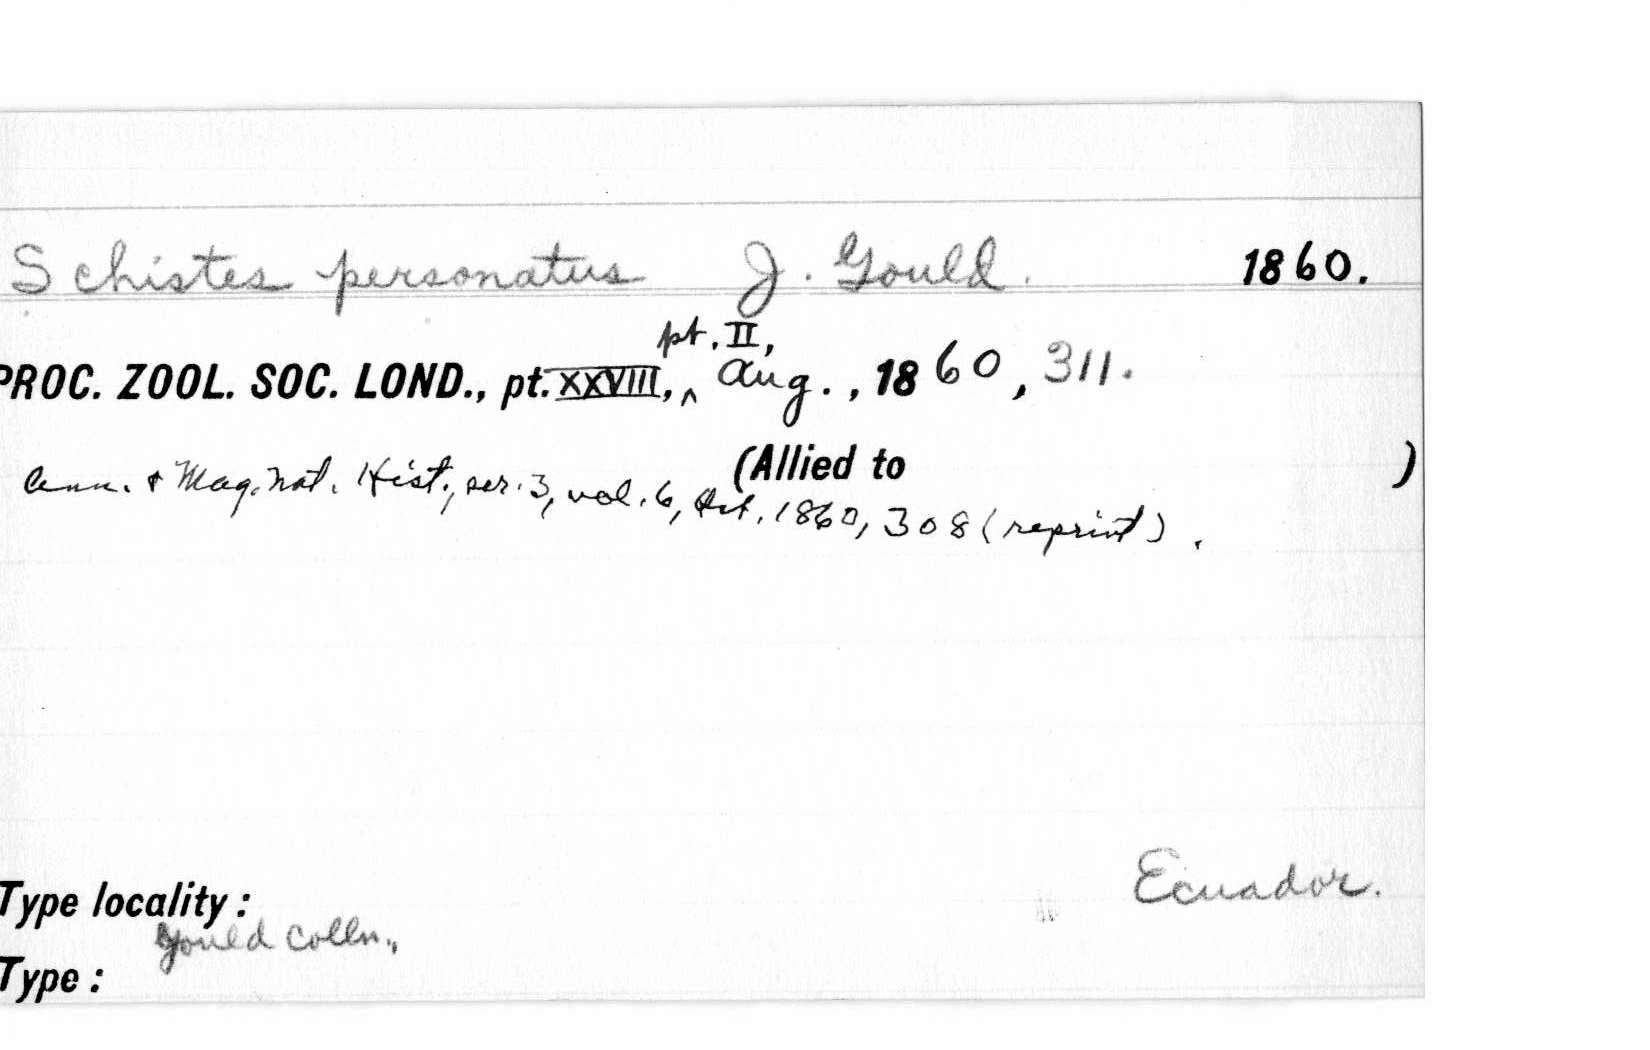 Schistes personatus J. Gould. 1860.
pt. II,
PROC. ZOOL. SOC. LOND., pt. XXVIII, ^ Aug., 1860, 311.
(Allied to )
Ann. & Mag. Nat. Hist., ser. 3, vol. 6, Oct. 1860, 308 (reprint).
Ecuador.
Type locality:
Gould Colln.,
Type: